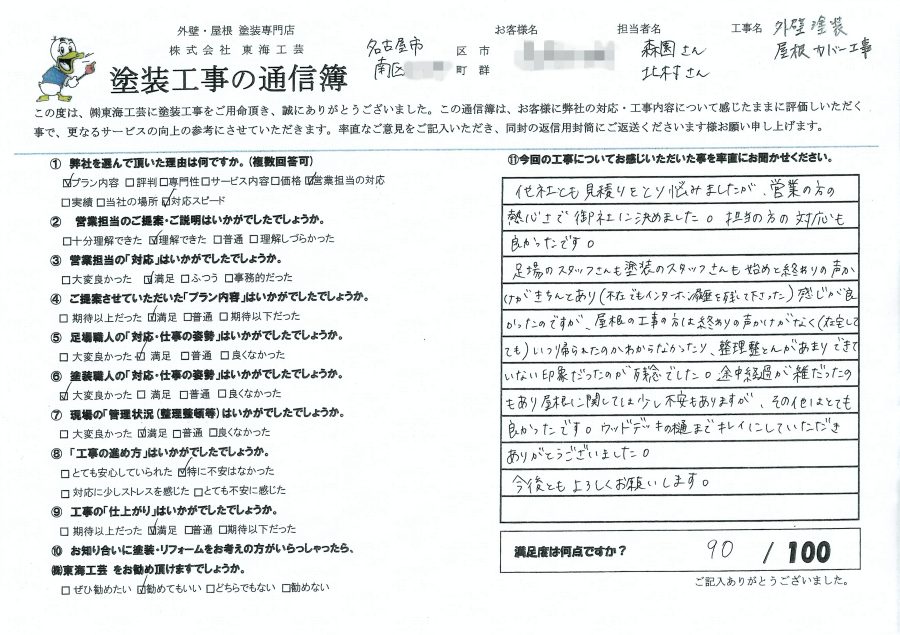 外壁・屋根 塗装専門店
株式会社 東海工芸
塗装工事の通信簿
名古屋市 区 市
南区 町 群
お客様名
担当者名
森園さん
北村さん
工事名 外壁塗装
屋根カバー工事
この度は、㈱東海工芸に塗装工事をご用命頂き、誠にありがとうございました。この通信簿は、お客様に弊社の対応・工事内容について感じたままに評価しいただく
事で、更なるサービスの向上の参考にさせていただきます。率直なご意見をご記入いただき、同封の返信用封筒にご返送くださいます様お願い申し上げます。
① 弊社を選んで頂いた理由は何ですか。(複数回答可)
☑プラン内容 □評判 □専門性 □サービス内容 □価格 ☑営業担当の対応
□実績 □当社の場所 ☑対応スピード
② 営業担当のご提案・ご説明はいかがでしたでしょうか。
□十分理解できた ☑理解できた □普通 □理解しづらかった
③ 営業担当の「対応」はいかがでしたでしょうか。
□大変良かった ☑満足 □ふつう □事務的だった
④ ご提案させていただいた「プラン内容」はいかがでしたでしょうか。
□期待以上だった ☑満足 □普通 □期待以下だった
⑤ 足場職人の「対応・仕事の姿勢」はいかがでしたでしょうか。
□大変良かった ☑満足 □普通 □良くなかった
⑥ 塗装職人の「対応・仕事の姿勢」はいかがでしたでしょうか。
☑大変良かった □満足 □普通 □良くなかった
⑦ 現場の「管理状況(整理整頓等)はいかがでしたでしょうか。
□大変良かった ☑満足 □普通 □良くなかった
⑧ 「工事の進め方」はいかがでしたでしょうか。
□とても安心していられた ☑特に不安はなかった
□対応に少しストレスを感じた □とても不安に感じた
⑨ 工事の「仕上がり」はいかがでしたでしょうか。
□期待以上だった ☑満足 □普通 □期待以下だった
⑩ お知り合いに塗装・リフォームをお考えの方がいらっしゃったら、
㈱東海工芸 をお勧め頂けますでしょうか。
□ぜひ勧めたい ☑勧めてもいい □どちらでもない □勧めない
⑪今回の工事についてお感じいただいた事を率直にお聞かせください。
他社とも見積りをとり悩みましたが、営業の方の
熱心さで御社に決めました。担当の方の対応も
良かったです。
足場のスタッフさんも塗装のスタッフさんも始めと終わりの声か
けがきちんとあり(不在でもインターホン履歴を残して下さった)感じが良
かったのですが、屋根の工事の方は終わりの声かけがなく(在宅して
ても)いつ帰られたのかわからなかったり、整理整とんがあまりできて
いない印象だったのが残念でした。途中経過が雑だったの
もあり屋根に関しては少し不安もありますが、その他はとても
良かったです。ウッドデッキの樋までキレイにしていただき
ありがとうございました。
今後ともよろしくお願いします。
満足度は何点ですか? 90 / 100
ご記入ありがとうございました。